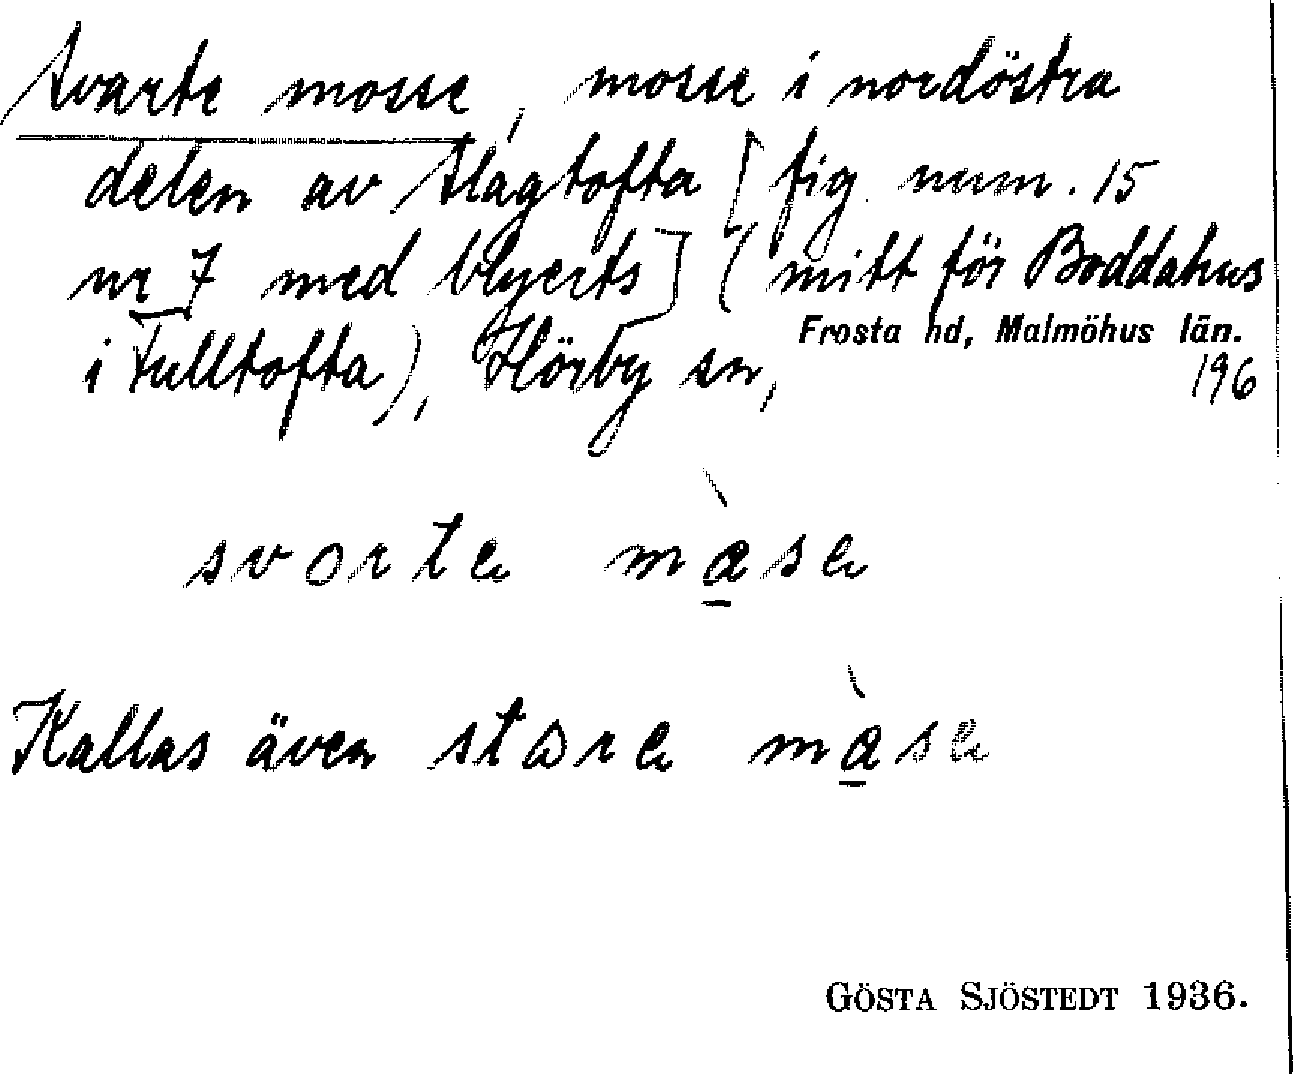 Svarte mosse, mosse i nordöstra
delen av Slagtofta [fig. num. 15
nr 7 med blyerts] (mitt för Boddahus
i Fulltofta), Hörby sn, Frosta hd, Malmöhus län.
196
svorte màse
Kallas även store màse
GÖSTA SJÖSTEDT 1936.